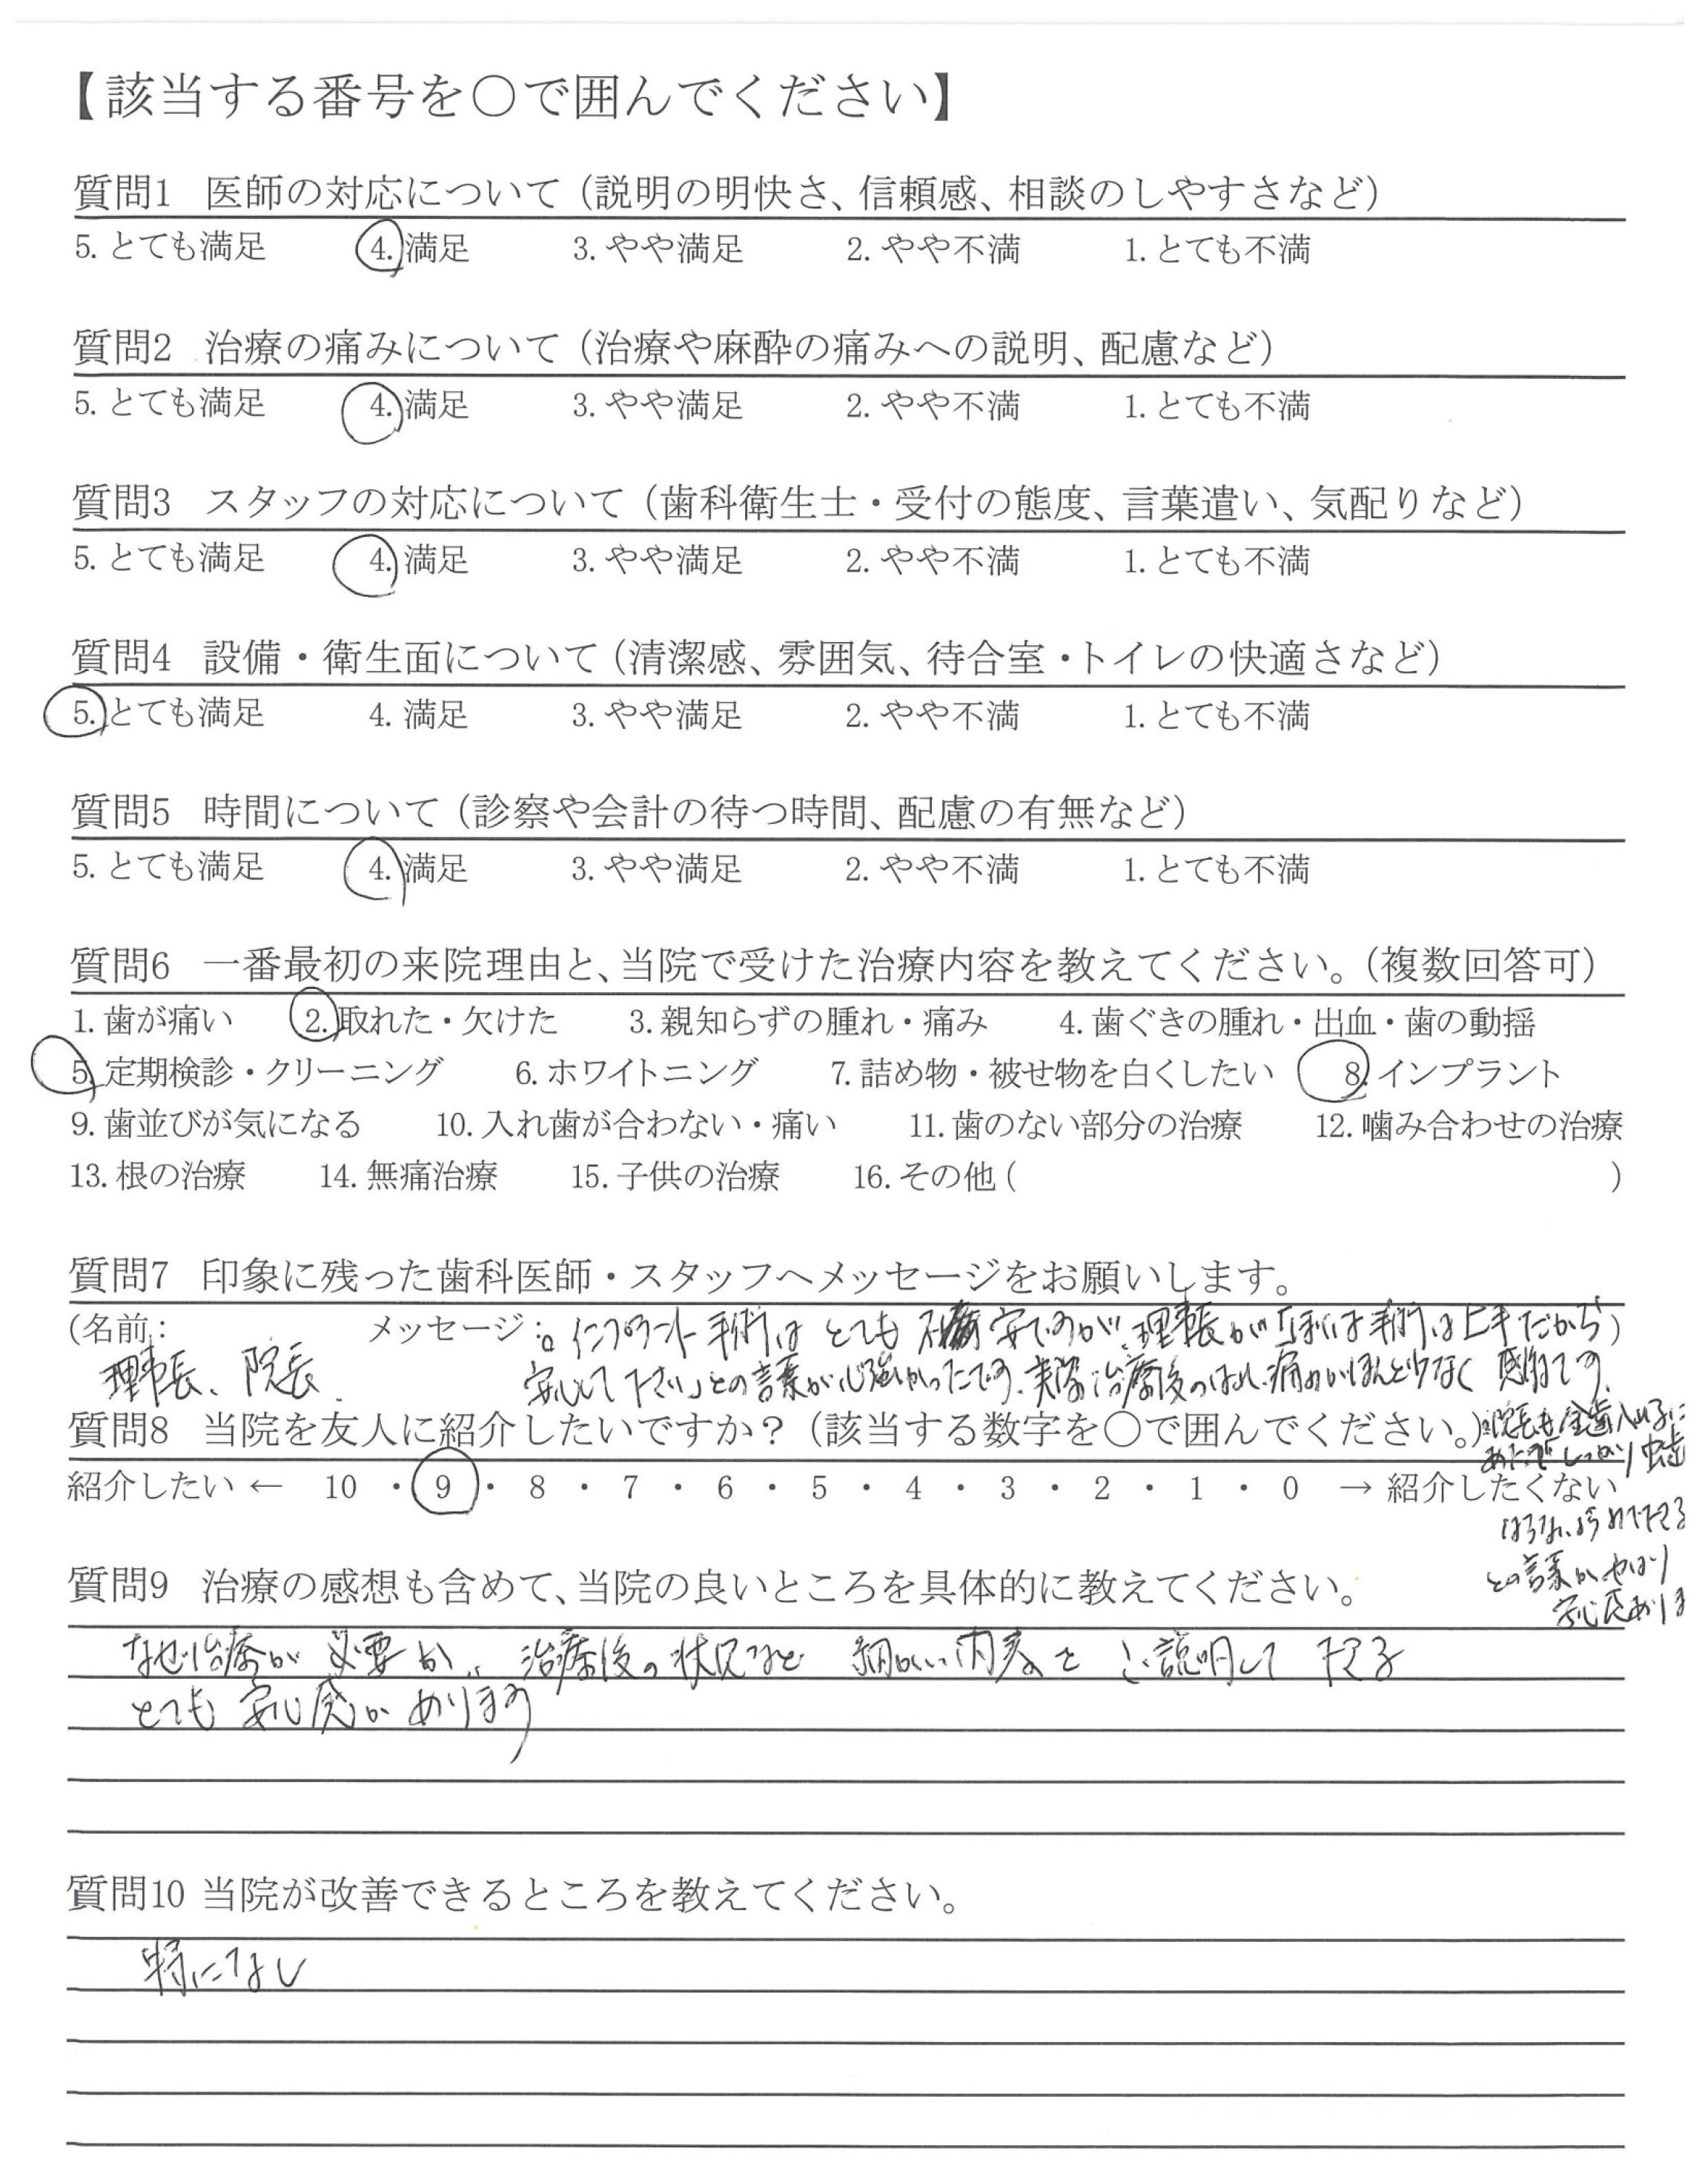 【該当する番号を〇で囲んでください】
質問1 医師の対応について（説明の明快さ、信頼感、相談のしやすさなど）
5. とても満足 4. 満足 3. やや満足 2. やや不満 1. とても不満
質問2 治療の痛みについて（治療や麻酔の痛みへの説明、配慮など）
5. とても満足 4. 満足 3. やや満足 2. やや不満 1. とても不満
質問3 スタッフの対応について（歯科衛生士・受付の態度、言葉遣い、気配りなど）
5. とても満足 4. 満足 3. やや満足 2. やや不満 1. とても不満
質問4 設備・衛生面について（清潔感、雰囲気、待合室・トイレの快適さなど）
5. とても満足 4. 満足 3. やや満足 2. やや不満 1. とても不満
質問5 時間について（診察や会計の待つ時間、配慮の有無など）
5. とても満足 4. 満足 3. やや満足 2. やや不満 1. とても不満
質問6 一番最初の来院理由と、当院で受けた治療内容を教えてください。（複数回答可）
1. 歯が痛い 2. 取れた・欠けた 3. 親知らずの腫れ・痛み 4. 歯ぐきの腫れ・出血・歯の動揺
5. 定期検診・クリーニング 6. ホワイトニング 7. 詰め物・被せ物を白くしたい 8. インプラント
9. 歯並びが気になる 10. 入れ歯が合わない・痛い 11. 歯のない部分の治療 12. 噛み合わせの治療
13. 根の治療 14. 無痛治療 15. 子供の治療 16. その他（ ）
質問7 印象に残った歯科医師・スタッフへメッセージをお願いします。
（名前： メッセージ：。インプラント手術は とても 不安ですが、理事長が「ぼくは手術は上手だから）
理事長、院長 安心して下さい」との言葉が心強かったです。実際治療後のはれ、痛みがほんと少なく 感謝です。
質問8 当院を友人に紹介したいですか？（該当する数字を〇で囲んでください。）
院長も金歯入れるに
しっかり虫歯
紹介したい ← 10 ・ 9 ・ 8 ・ 7 ・ 6 ・ 5 ・ 4 ・ 3 ・ 2 ・ 1 ・ 0 → 紹介したくない
との言葉が、やはり
安心感あります
質問9 治療の感想も含めて、当院の良いところを具体的に教えてください。
なぜ治療が 必要か、治療後の状況など 細かい内容を ご説明して 下さる
とても 安心感が あります
質問10 当院が改善できるところを教えてください。
特になし